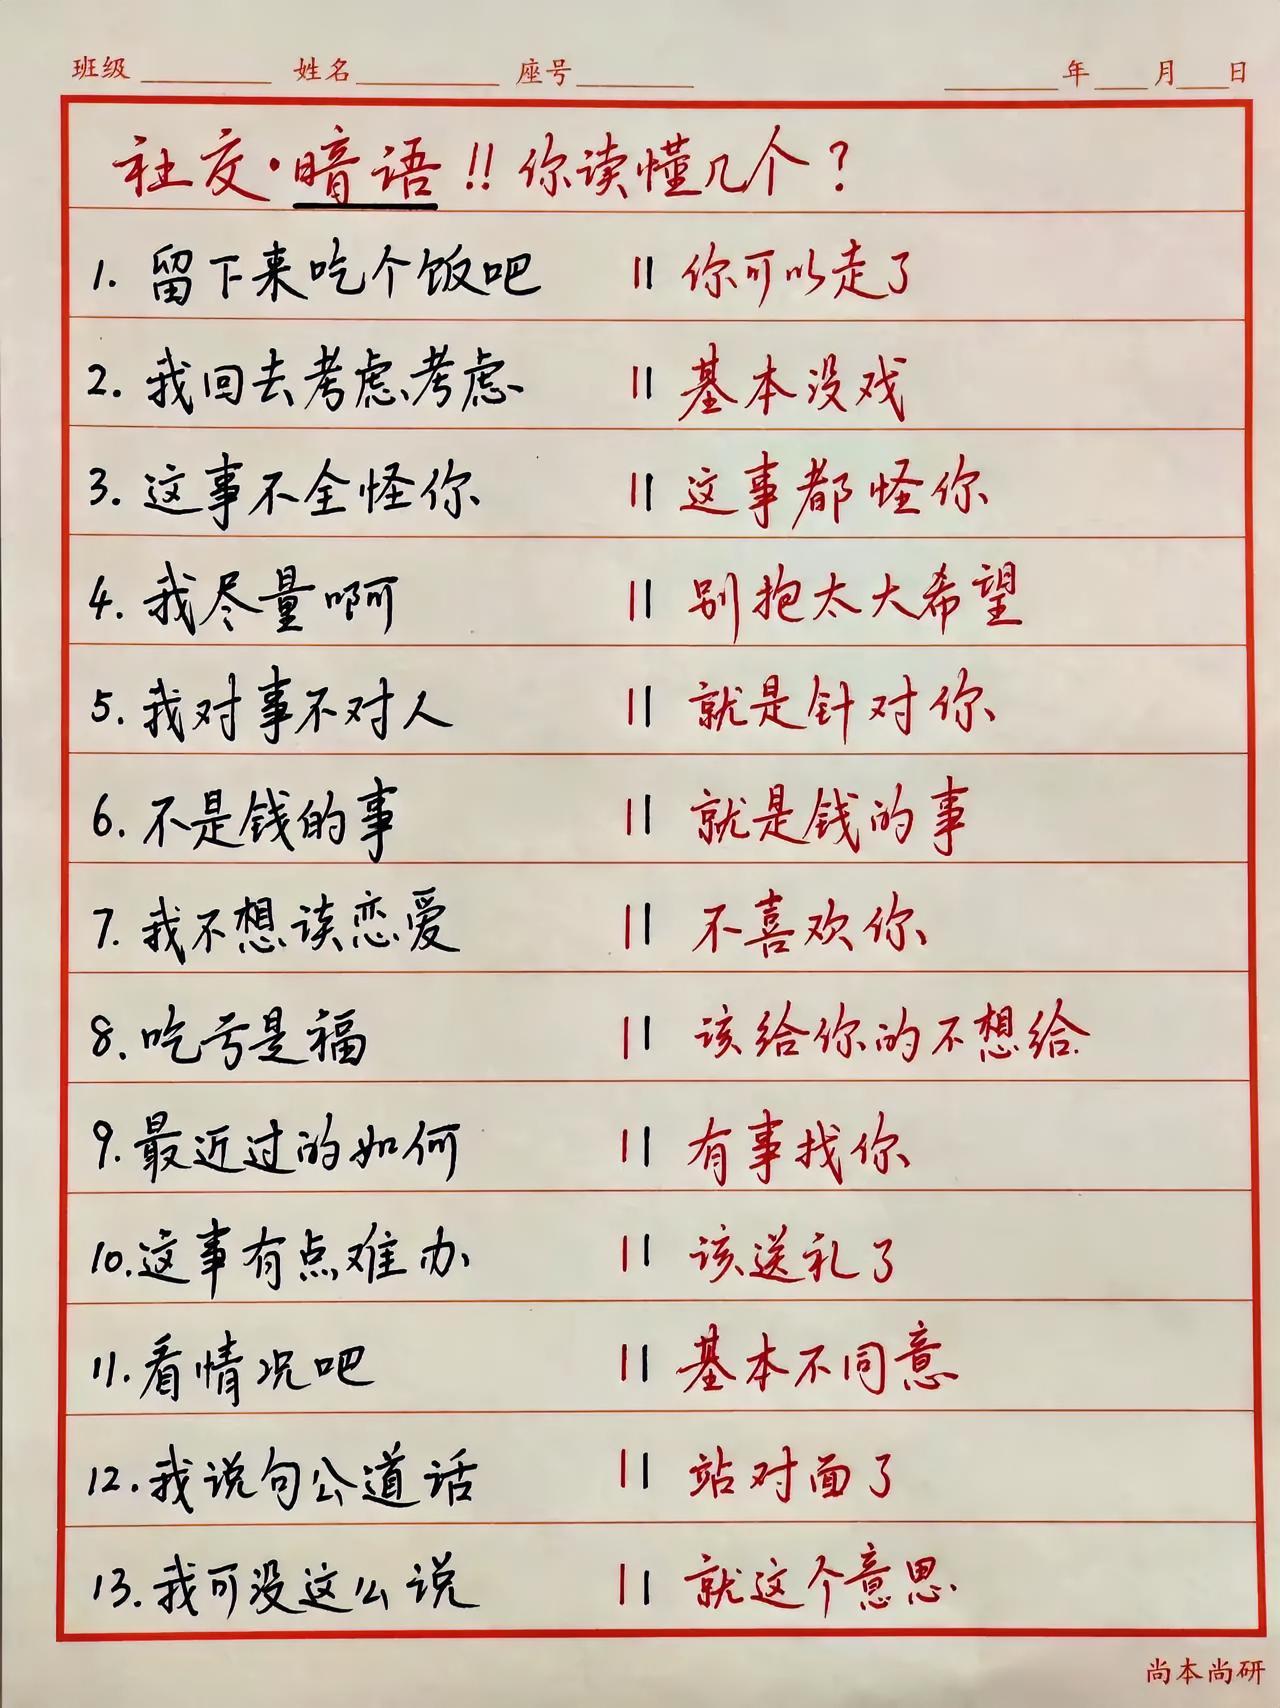 班级 姓名 座号 年 月 日
社交·暗语!!你读懂几个?
1. 留下来吃个饭吧 || 你可以走了
2. 我回去考虑考虑 || 基本没戏
3. 这事不全怪你 || 这事都怪你
4. 我尽量啊 || 别抱太大希望
5. 我对事不对人 || 就是针对你
6. 不是钱的事 || 就是钱的事
7. 我不想谈恋爱 || 不喜欢你
8. 吃亏是福 || 该给你的不想给
9. 最近过的如何 || 有事找你
10. 这事有点难办 || 该送礼了
11. 看情况吧 || 基本不同意
12. 我说句公道话 || 站对面了
13. 我可没这么说 || 就这个意思
尚本尚研